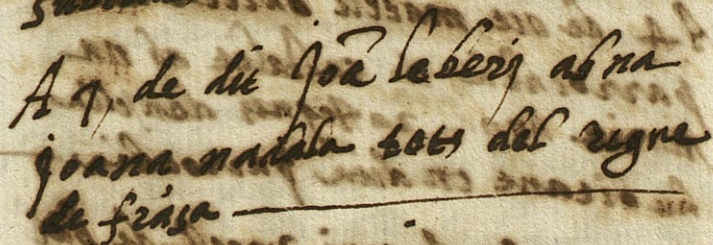 A 7, de dit Joā leberj ab na
joana nadala tots del regne
de frāsa